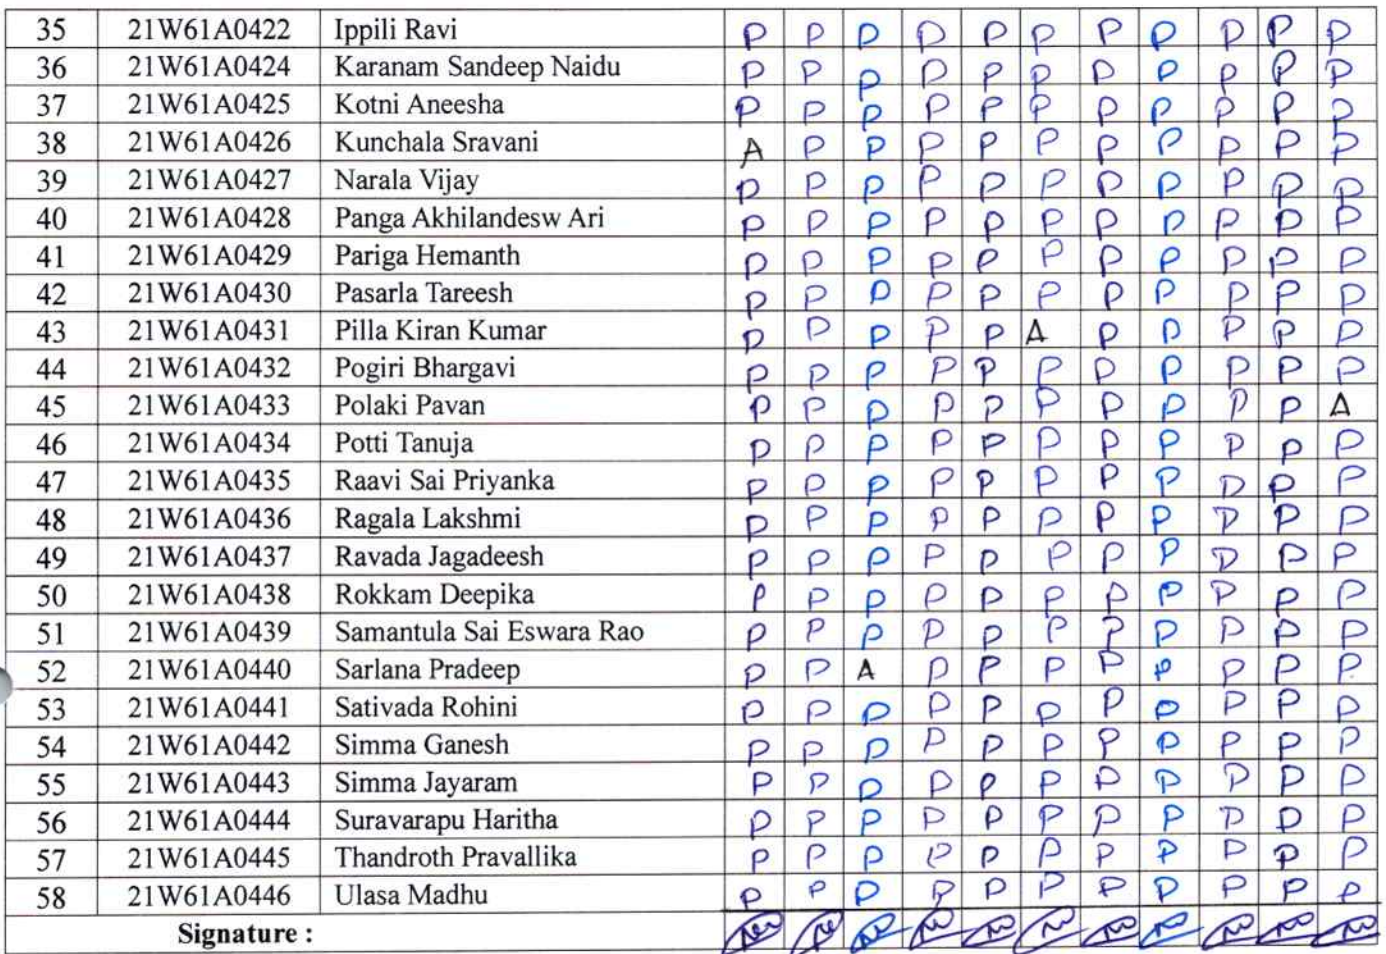 35 21W61A0422 Ippili Ravi P P P P P P P P P P P
36 21W61A0424 Karanam Sandeep Naidu P P P P P P P P P P P
37 21W61A0425 Kotni Aneesha P P P P P P P P P P P
38 21W61A0426 Kunchala Sravani A P P P P P P P P P P
39 21W61A0427 Narala Vijay P P P P P P P P P P P
40 21W61A0428 Panga Akhilandesw Ari P P P P P P P P P P P
41 21W61A0429 Pariga Hemanth P P P P P P P P P P P
42 21W61A0430 Pasarla Tareesh P P P P P P P P P P P
43 21W61A0431 Pilla Kiran Kumar P P P P P A P P P P P
44 21W61A0432 Pogiri Bhargavi P P P P P P P P P P P
45 21W61A0433 Polaki Pavan P P P P P P P P P P A
46 21W61A0434 Potti Tanuja P P P P P P P P P P P
47 21W61A0435 Raavi Sai Priyanka P P P P P P P P P P P
48 21W61A0436 Ragala Lakshmi P P P P P P P P P P P
49 21W61A0437 Ravada Jagadeesh P P P P P P P P P P P
50 21W61A0438 Rokkam Deepika P P P P P P P P P P P
51 21W61A0439 Samantula Sai Eswara Rao P P P P P P P P P P P
52 21W61A0440 Sarlana Pradeep P P A P P P P P P P P
53 21W61A0441 Sativada Rohini P P P P P P P P P P P
54 21W61A0442 Simma Ganesh P P P P P P P P P P P
55 21W61A0443 Simma Jayaram P P P P P P P P P P P
56 21W61A0444 Suravarapu Haritha P P P P P P P P P P P
57 21W61A0445 Thandroth Pravallika P P P P P P P P P P P
58 21W61A0446 Ulasa Madhu P P P P P P P P P P P
Signature :